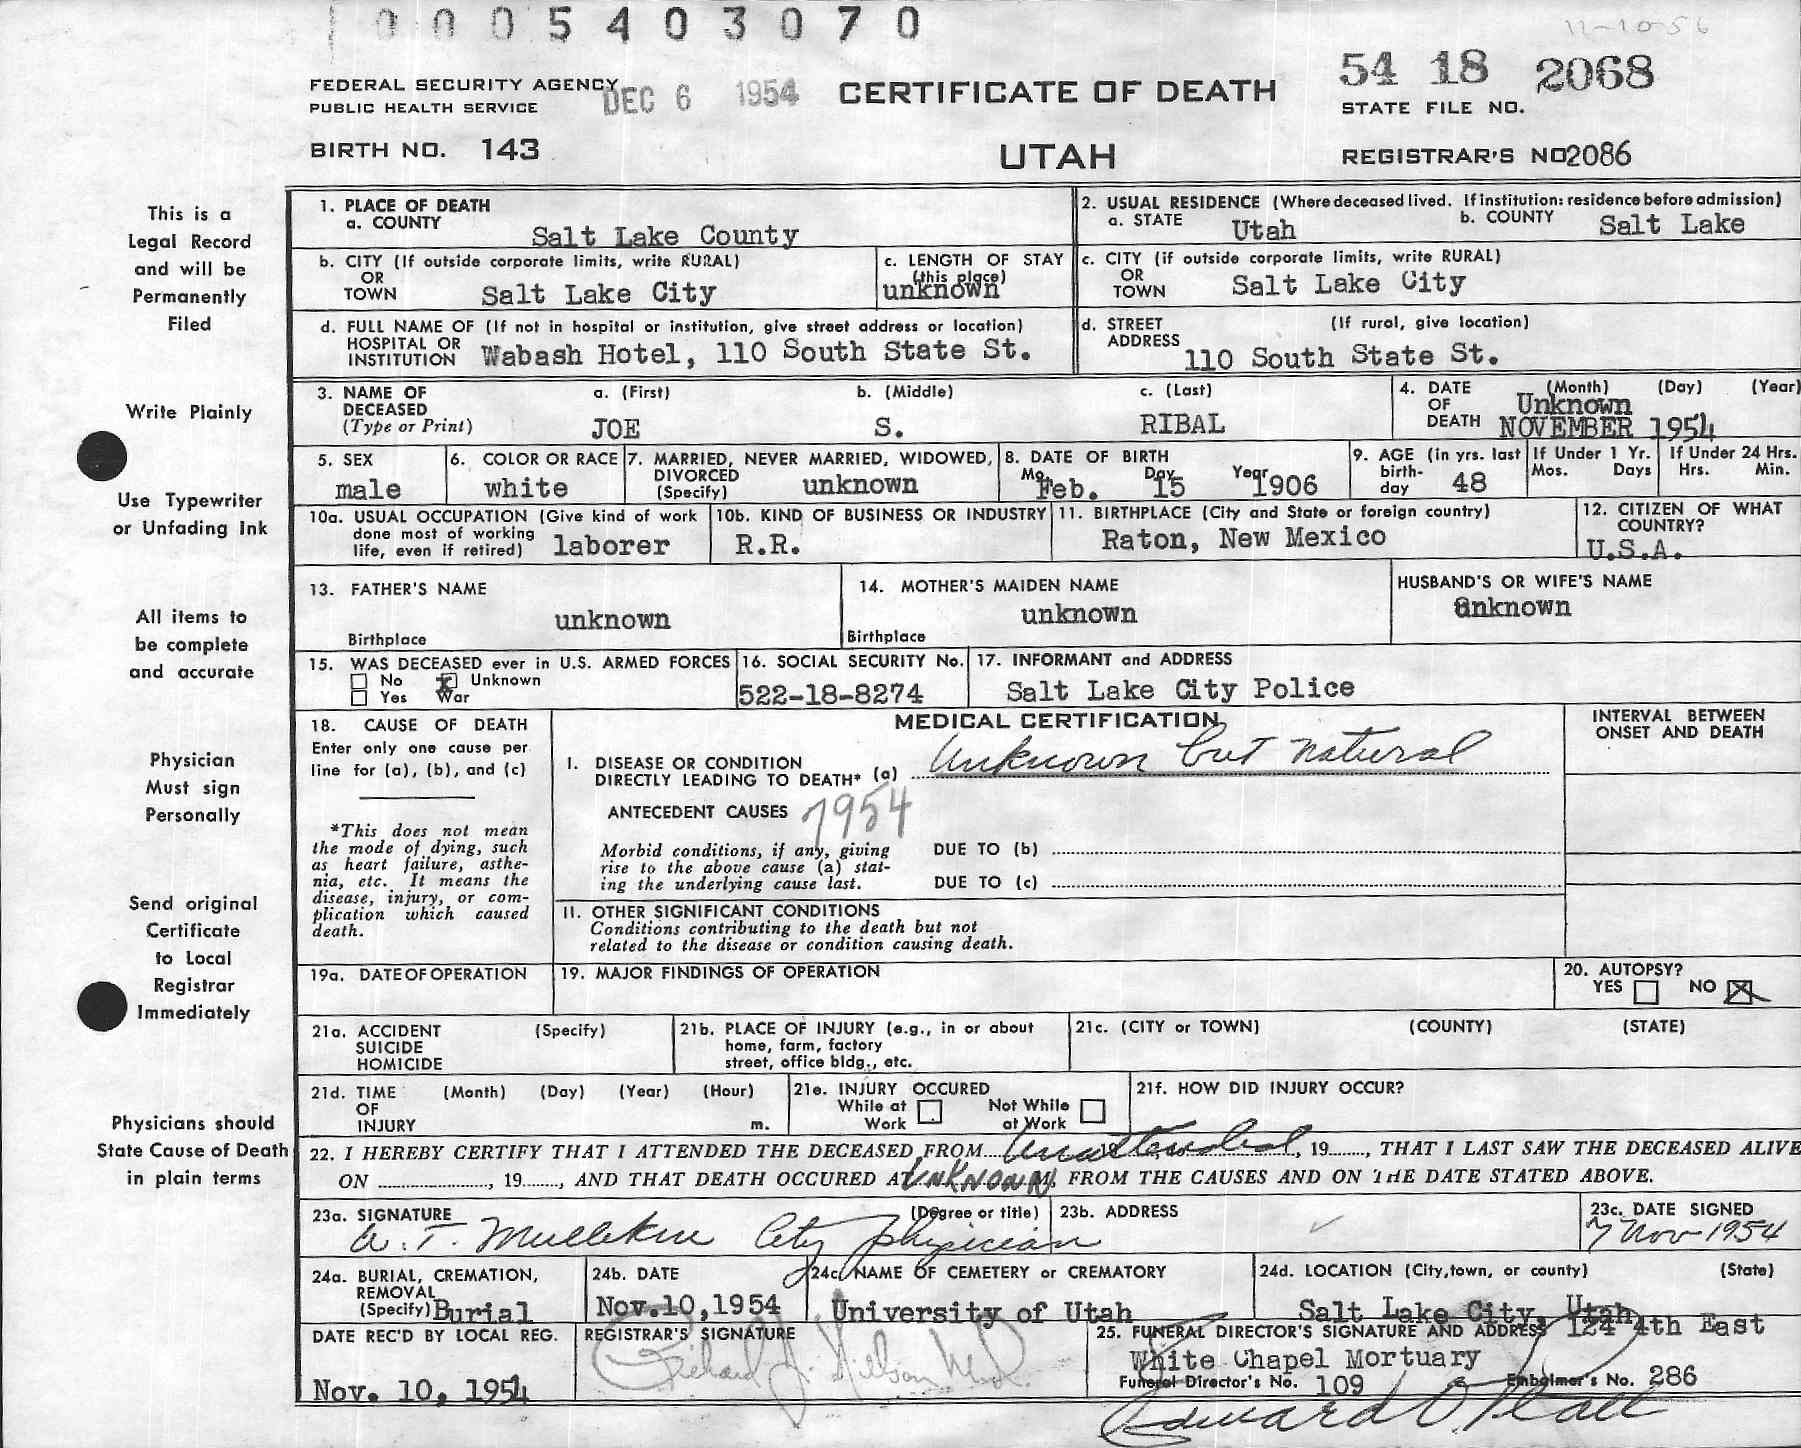 0005403070
11-10-56
FEDERAL SECURITY AGENCY
PUBLIC HEALTH SERVICE
DEC 6 1954
CERTIFICATE OF DEATH
54 18 2068
STATE FILE NO.
BIRTH NO. 143
UTAH
REGISTRAR'S NO 2086
This is a
Legal Record
and will be
Permanently
Filed
Write Plainly
Use Typewriter
or Unfading Ink
All items to
be complete
and accurate
Physician
Must sign
Personally
Send original
Certificate
to Local
Registrar
Immediately
Physicians should
State Cause of Death
in plain terms
1. PLACE OF DEATH
a. COUNTY
Salt Lake County
2. USUAL RESIDENCE (Where deceased lived. If institution: residence before admission)
a. STATE Utah b. COUNTY Salt Lake
b. CITY (If outside corporate limits, write RURAL)
OR
TOWN Salt Lake City
c. LENGTH OF STAY
(this place)
unknown
c. CITY (if outside corporate limits, write RURAL)
OR
TOWN Salt Lake City
d. FULL NAME OF (If not in hospital or institution, give street address or location)
HOSPITAL OR
INSTITUTION Wabash Hotel, 110 South State St.
d. STREET (If rural, give location)
ADDRESS
110 South State St.
3. NAME OF
DECEASED
(Type or Print)
a. (First) b. (Middle) c. (Last)
JOE S. RIBAL
4. DATE
OF
DEATH
(Month) (Day) (Year)
Unknown
NOVEMBER 1954
5. SEX
male
6. COLOR OR RACE
white
7. MARRIED, NEVER MARRIED, WIDOWED,
DIVORCED
(Specify) unknown
8. DATE OF BIRTH
Mo. Day Year
Feb. 15 1906
9. AGE (in yrs. last
birth-
day 48
If Under 1 Yr.
Mos. Days
If Under 24 Hrs.
Hrs. Min.
10a. USUAL OCCUPATION (Give kind of work
done most of working
life, even if retired) laborer
10b. KIND OF BUSINESS OR INDUSTRY
R.R.
11. BIRTHPLACE (City and State or foreign country)
Raton, New Mexico
12. CITIZEN OF WHAT
COUNTRY?
U.S.A.
13. FATHER'S NAME
unknown
Birthplace
14. MOTHER'S MAIDEN NAME
unknown
Birthplace
HUSBAND'S OR WIFE'S NAME
unknown
15. WAS DECEASED ever in U.S. ARMED FORCES
No x Unknown
Yes War
16. SOCIAL SECURITY No.
522-18-8274
17. INFORMANT and ADDRESS
Salt Lake City Police
18. CAUSE OF DEATH
Enter only one cause per
line for (a), (b), and (c)
*This does not mean
the mode of dying, such
as heart failure, asthe-
nia, etc. It means the
disease, injury, or com-
plication which caused
death.
MEDICAL CERTIFICATION
INTERVAL BETWEEN
ONSET AND DEATH
I. DISEASE OR CONDITION
DIRECTLY LEADING TO DEATH* (a) Unknown but natural
ANTECEDENT CAUSES 7954
Morbid conditions, if any, giving
rise to the above cause (a) stat-
ing the underlying cause last.
DUE TO (b)
DUE TO (c)
II. OTHER SIGNIFICANT CONDITIONS
Conditions contributing to the death but not
related to the disease or condition causing death.
19a. DATE OF OPERATION
19. MAJOR FINDINGS OF OPERATION
20. AUTOPSY?
YES NO X
21a. ACCIDENT (Specify)
SUICIDE
HOMICIDE
21b. PLACE OF INJURY (e.g., in or about
home, farm, factory
street, office bldg., etc.
21c. (CITY or TOWN) (COUNTY) (STATE)
21d. TIME (Month) (Day) (Year) (Hour)
OF
INJURY m.
21e. INJURY OCCURED
While at Work
Not While at Work
21f. HOW DID INJURY OCCUR?
22. I HEREBY CERTIFY THAT I ATTENDED THE DECEASED FROM Unattended, 19......, THAT I LAST SAW THE DECEASED ALIVE
ON ..............., 19......, AND THAT DEATH OCCURED AT UNKNOWN M, FROM THE CAUSES AND ON THE DATE STATED ABOVE.
23a. SIGNATURE (Degree or title)
W. T. Mullekin City Physician
23b. ADDRESS
23c. DATE SIGNED
7 Nov 1954
24a. BURIAL, CREMATION,
REMOVAL
(Specify) Burial
24b. DATE
Nov.10,1954
24c. NAME OF CEMETERY or CREMATORY
University of Utah
24d. LOCATION (City, town, or county) (State)
Salt Lake City, Utah
DATE REC'D BY LOCAL REG.
Nov. 10, 1954
REGISTRAR'S SIGNATURE
Richard J. Nilson M.D.
25. FUNERAL DIRECTOR'S SIGNATURE AND ADDRESS 124 4th East
White Chapel Mortuary
Funeral Director's No. 109 Embalmer's No. 286
Edward O. Hall